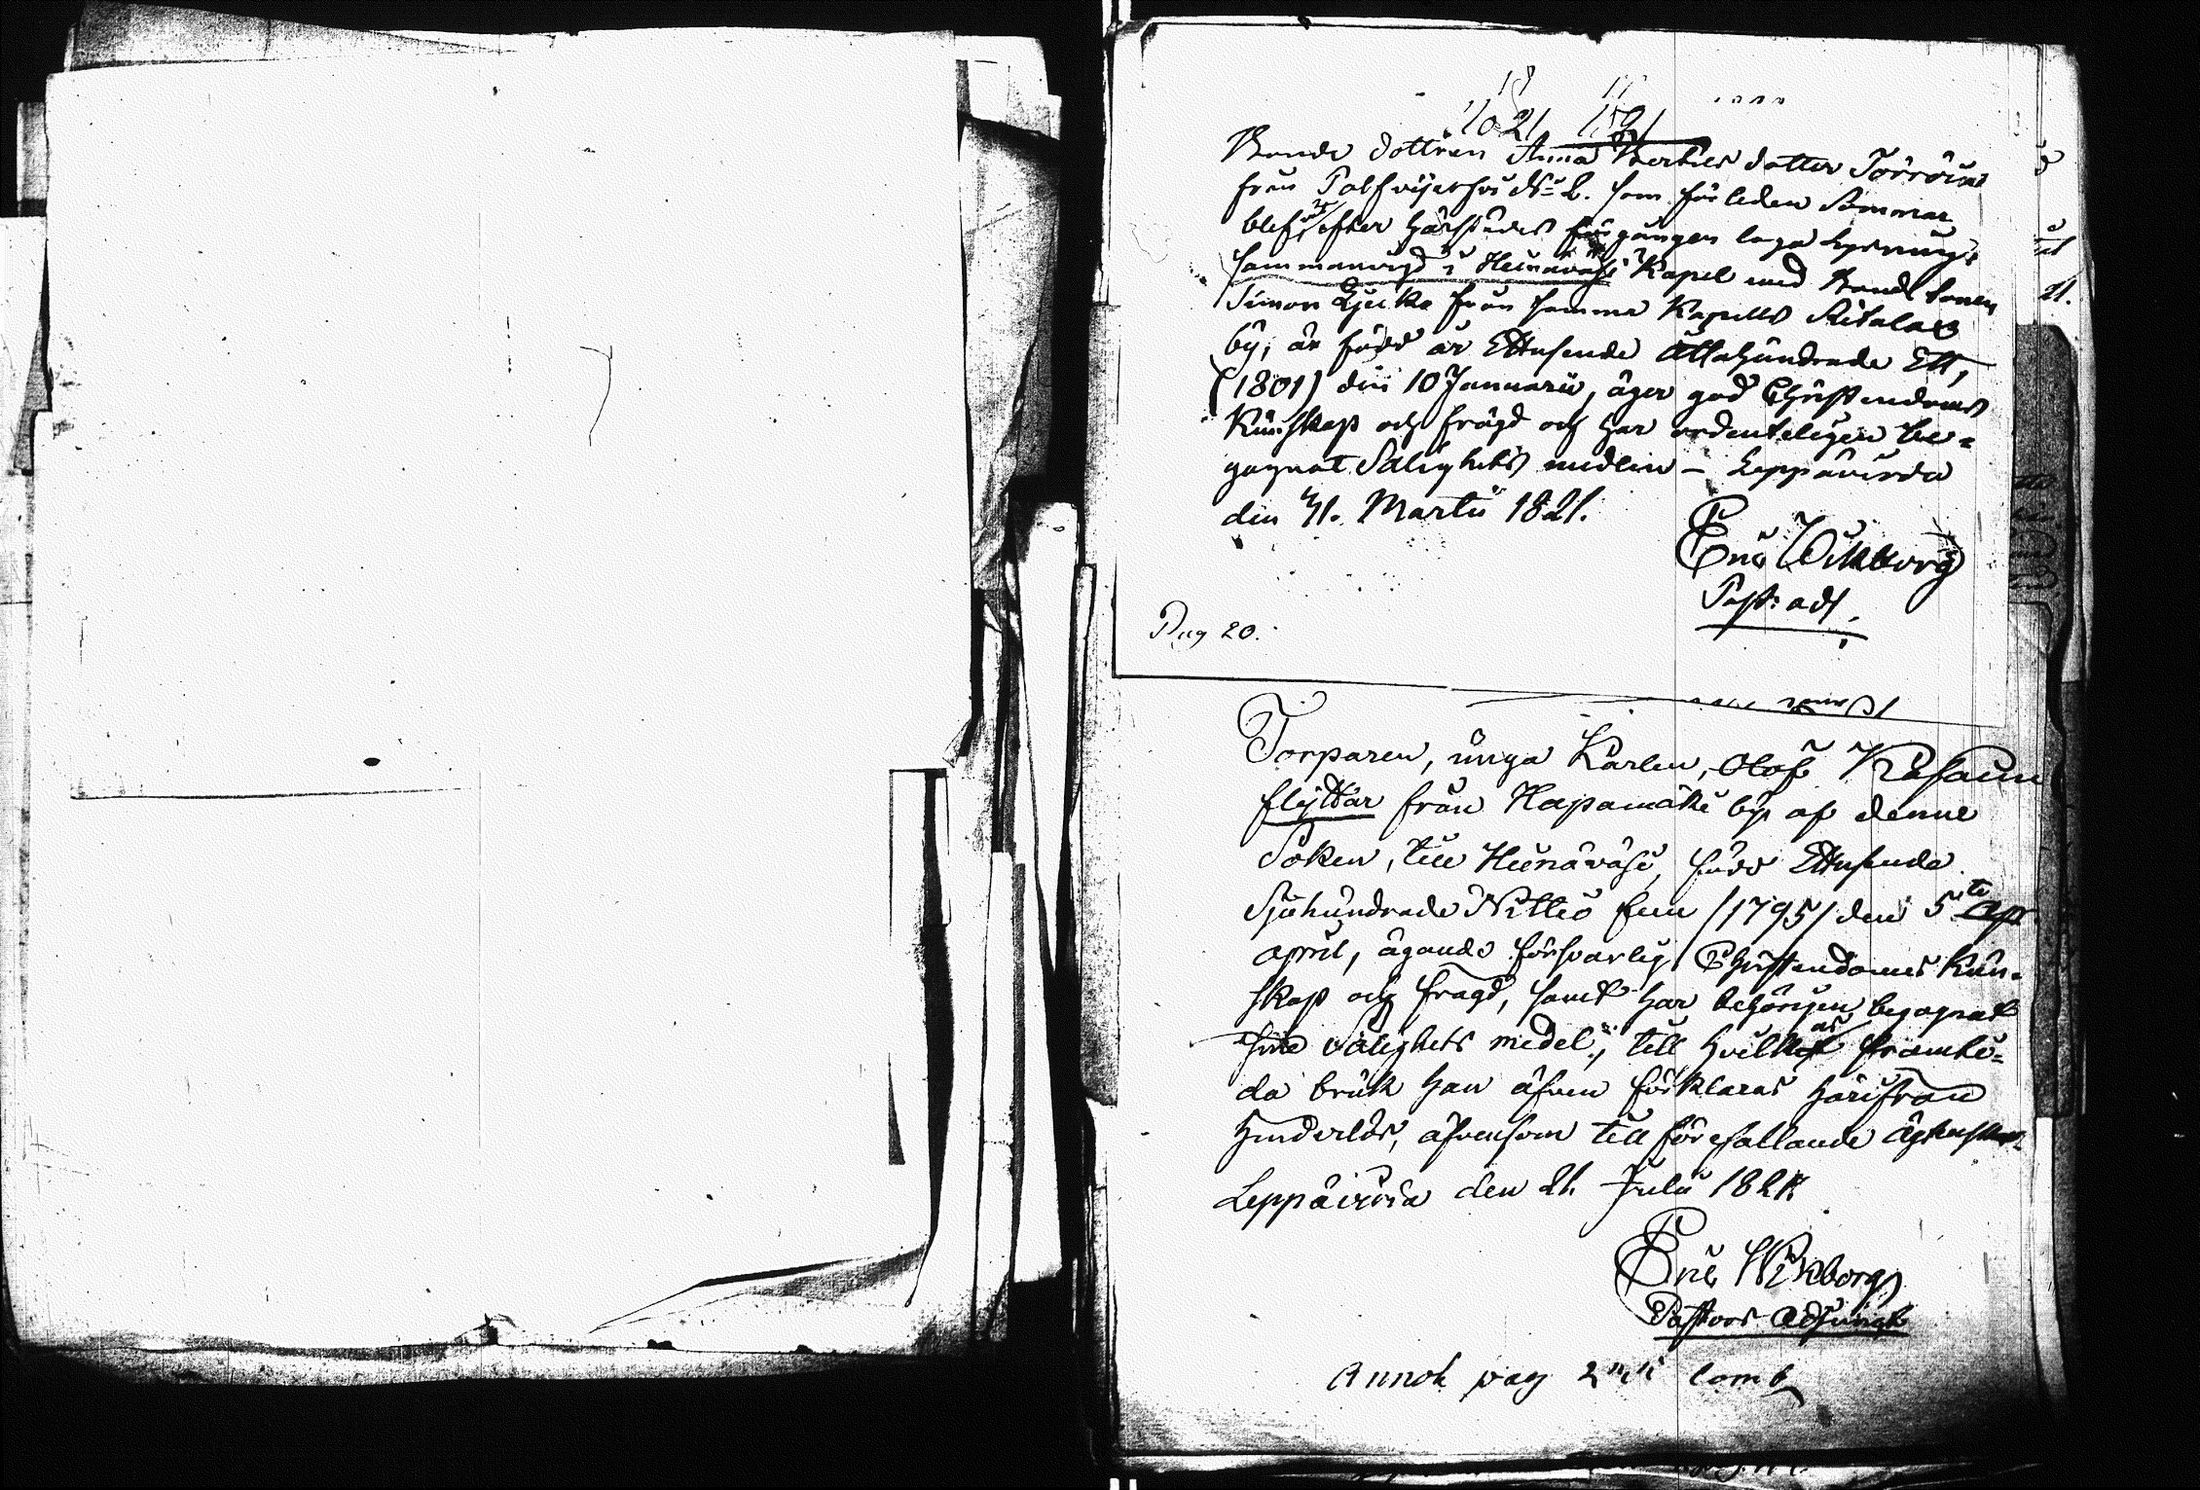 1021 1821
Bonde dottren Anna Bertils dotter Törröin
från Paldvijerfvi No 2. som förleden Sommar
blef, efter härstädes föregången laga lysning,
sammanvigd i Heinävesi Kapel med Bonde sonen
Simon Ljukko från samma Kapells
by, är född år Ettusende Åttahundrade Ett,
(1801) din 10 Januarii, äger god Christendoms
Kunskap och frägd och har ordenteligen be-
gagnat Salighets medlen – Leppävirda
din 31. Martii 1821.
Eric Wikborg
Past: adj.
Pag 20.
Torparen, unga Karlen, Olof Kasain
flyttar från Hapamäki by af denne
Soken, till Heinävesi, född Ettusende
Sjuhundrade Nittio fem /1795/ den 5te
april, ägande försvarlig Christendoms Kun-
skap och frägd, samt har behörigen begagnat
sine Salighets medel, till hvilkas framti-
da bruk han äfven förklaras härifrån
hinderlös, äfvensom till förefallande
Leppävirda den 21. Julii 1821
Eric Wikborg
Pastors Adjunct
Annot pag